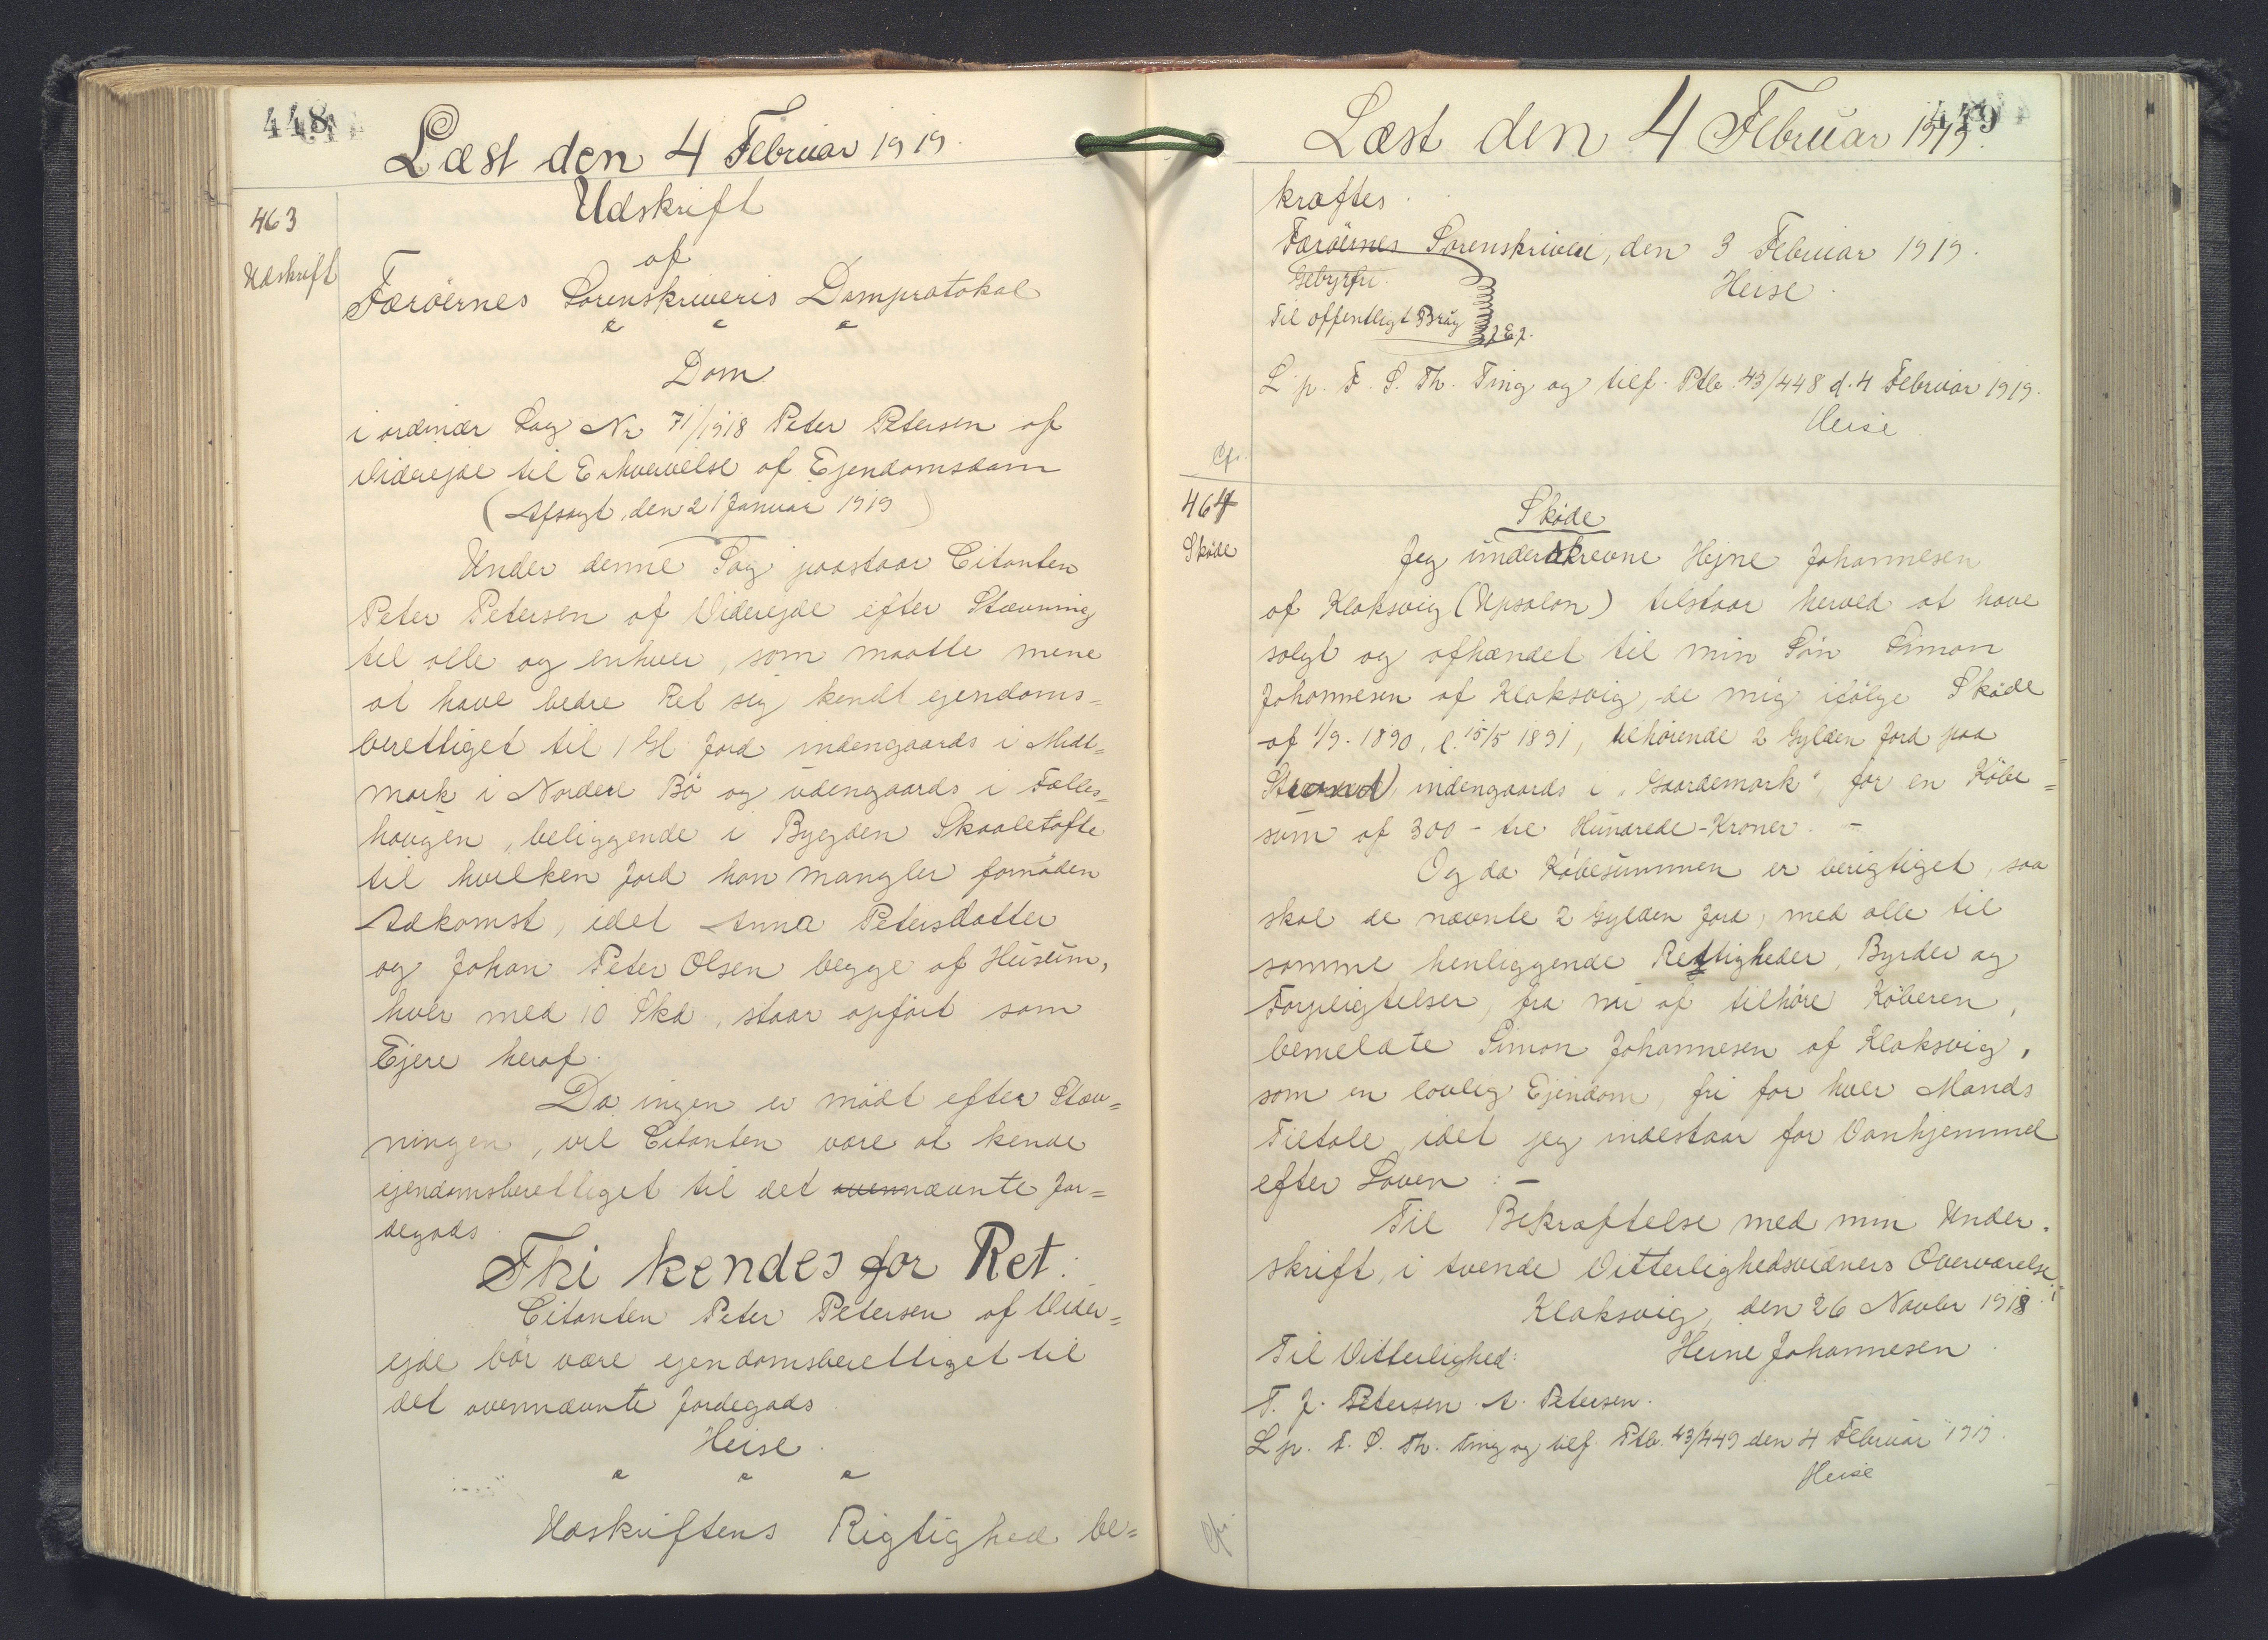 448
Læst den 4 Februar 1919.
463
Udskrift
Udskrift
af
Færøernes Sorenskriveris Domprotokol
Dom
i ordinær Sag Nr 71/1918 Peter Petersen af
Viderejde til Erhvervelse af Ejendomsdom
(Afsagt, den 21 Januar 1919)
Under denne Sag paastaar Citanten
Peter Petersen af Viderejde efter Stævning
til alle og enhver, som maatte mene
at have bedre Ret sig kendt ejendoms=
berettiget til 1 Gl Jord indengaards i Midt=
mark i Nordere Bø og udengaards i Fælles=
haugen, beliggende i Bygden Skaaletofte
til hvilken Jord han mangler fornøden
Adkomst, idet Anna Petersdatter
og Johan Peter Olsen begge af Husum,
hver med 10 Skd, staar opført som
Ejere heraf.
Da ingen er mødt efter Stæv=
ningen, vil Citanten være at kende
ejendomsberettiget til det ovennævnte Jor=
degods.
Thi kendes for Ret:
Citanten Peter Petersen af Vider=
ejde bør være ejendomsberettiget til
det ovennævnte Jordegods.
Heise.
Udskriftens Rigtighed be=
449
Læst den 4 Februar 1919.
kræftes.
Færøernes Sorenskriveri, den 3 Februar 1919.
Gebyrfri.
Heise.
Til offentligt Brug
L. p. F. S. Th. Ting og tilf. Ptb. 43/448 d. 4 Februar 1919.
Heise
Cfr.
464
Skøde
Skøde
Jeg underskrevne Hejne Johannesen
af Klaksvig (Upsalon) tilstaar herved at have
solgt og afhændet til min Søn Simon
Johannesen af Klaksvig, de mig ifølge Skøde
af 1/9. 1890, l. 15/5 1891, tilhørende 2 Gylden Jord paa
Strond, indengaards i "Gaardemark", for en Købe=
sum af 300 - tre Hundrede - Kroner. -
Og da Købesummen er berigtiget, saa
skal de nævnte 2 Gylden Jord, med alle til
samme henliggende Rettigheder, Byrder og
Forpligtelser, fra nu af tilhøre Køberen,
bemeldte Simon Johannesen af Klaksvig,
som en lovlig Ejendom, fri for hver Mands
Tiltale, idet jeg indestaar for Vanhjemmel
efter Loven: -
Til Bekræftelse med min Under=
skrift, i tvende Vitterlighedsvidners Overværelse.
Klaksvig, den 26 Novbr 1918.
Til Vitterlighed:
Heine Johannesen.
T. J. Petersen. A. Petersen.
L. p. F. S. Th. Ting og tilf. Ptb. 43/449 den 4 Februar 1919.
Heise
Cfr.